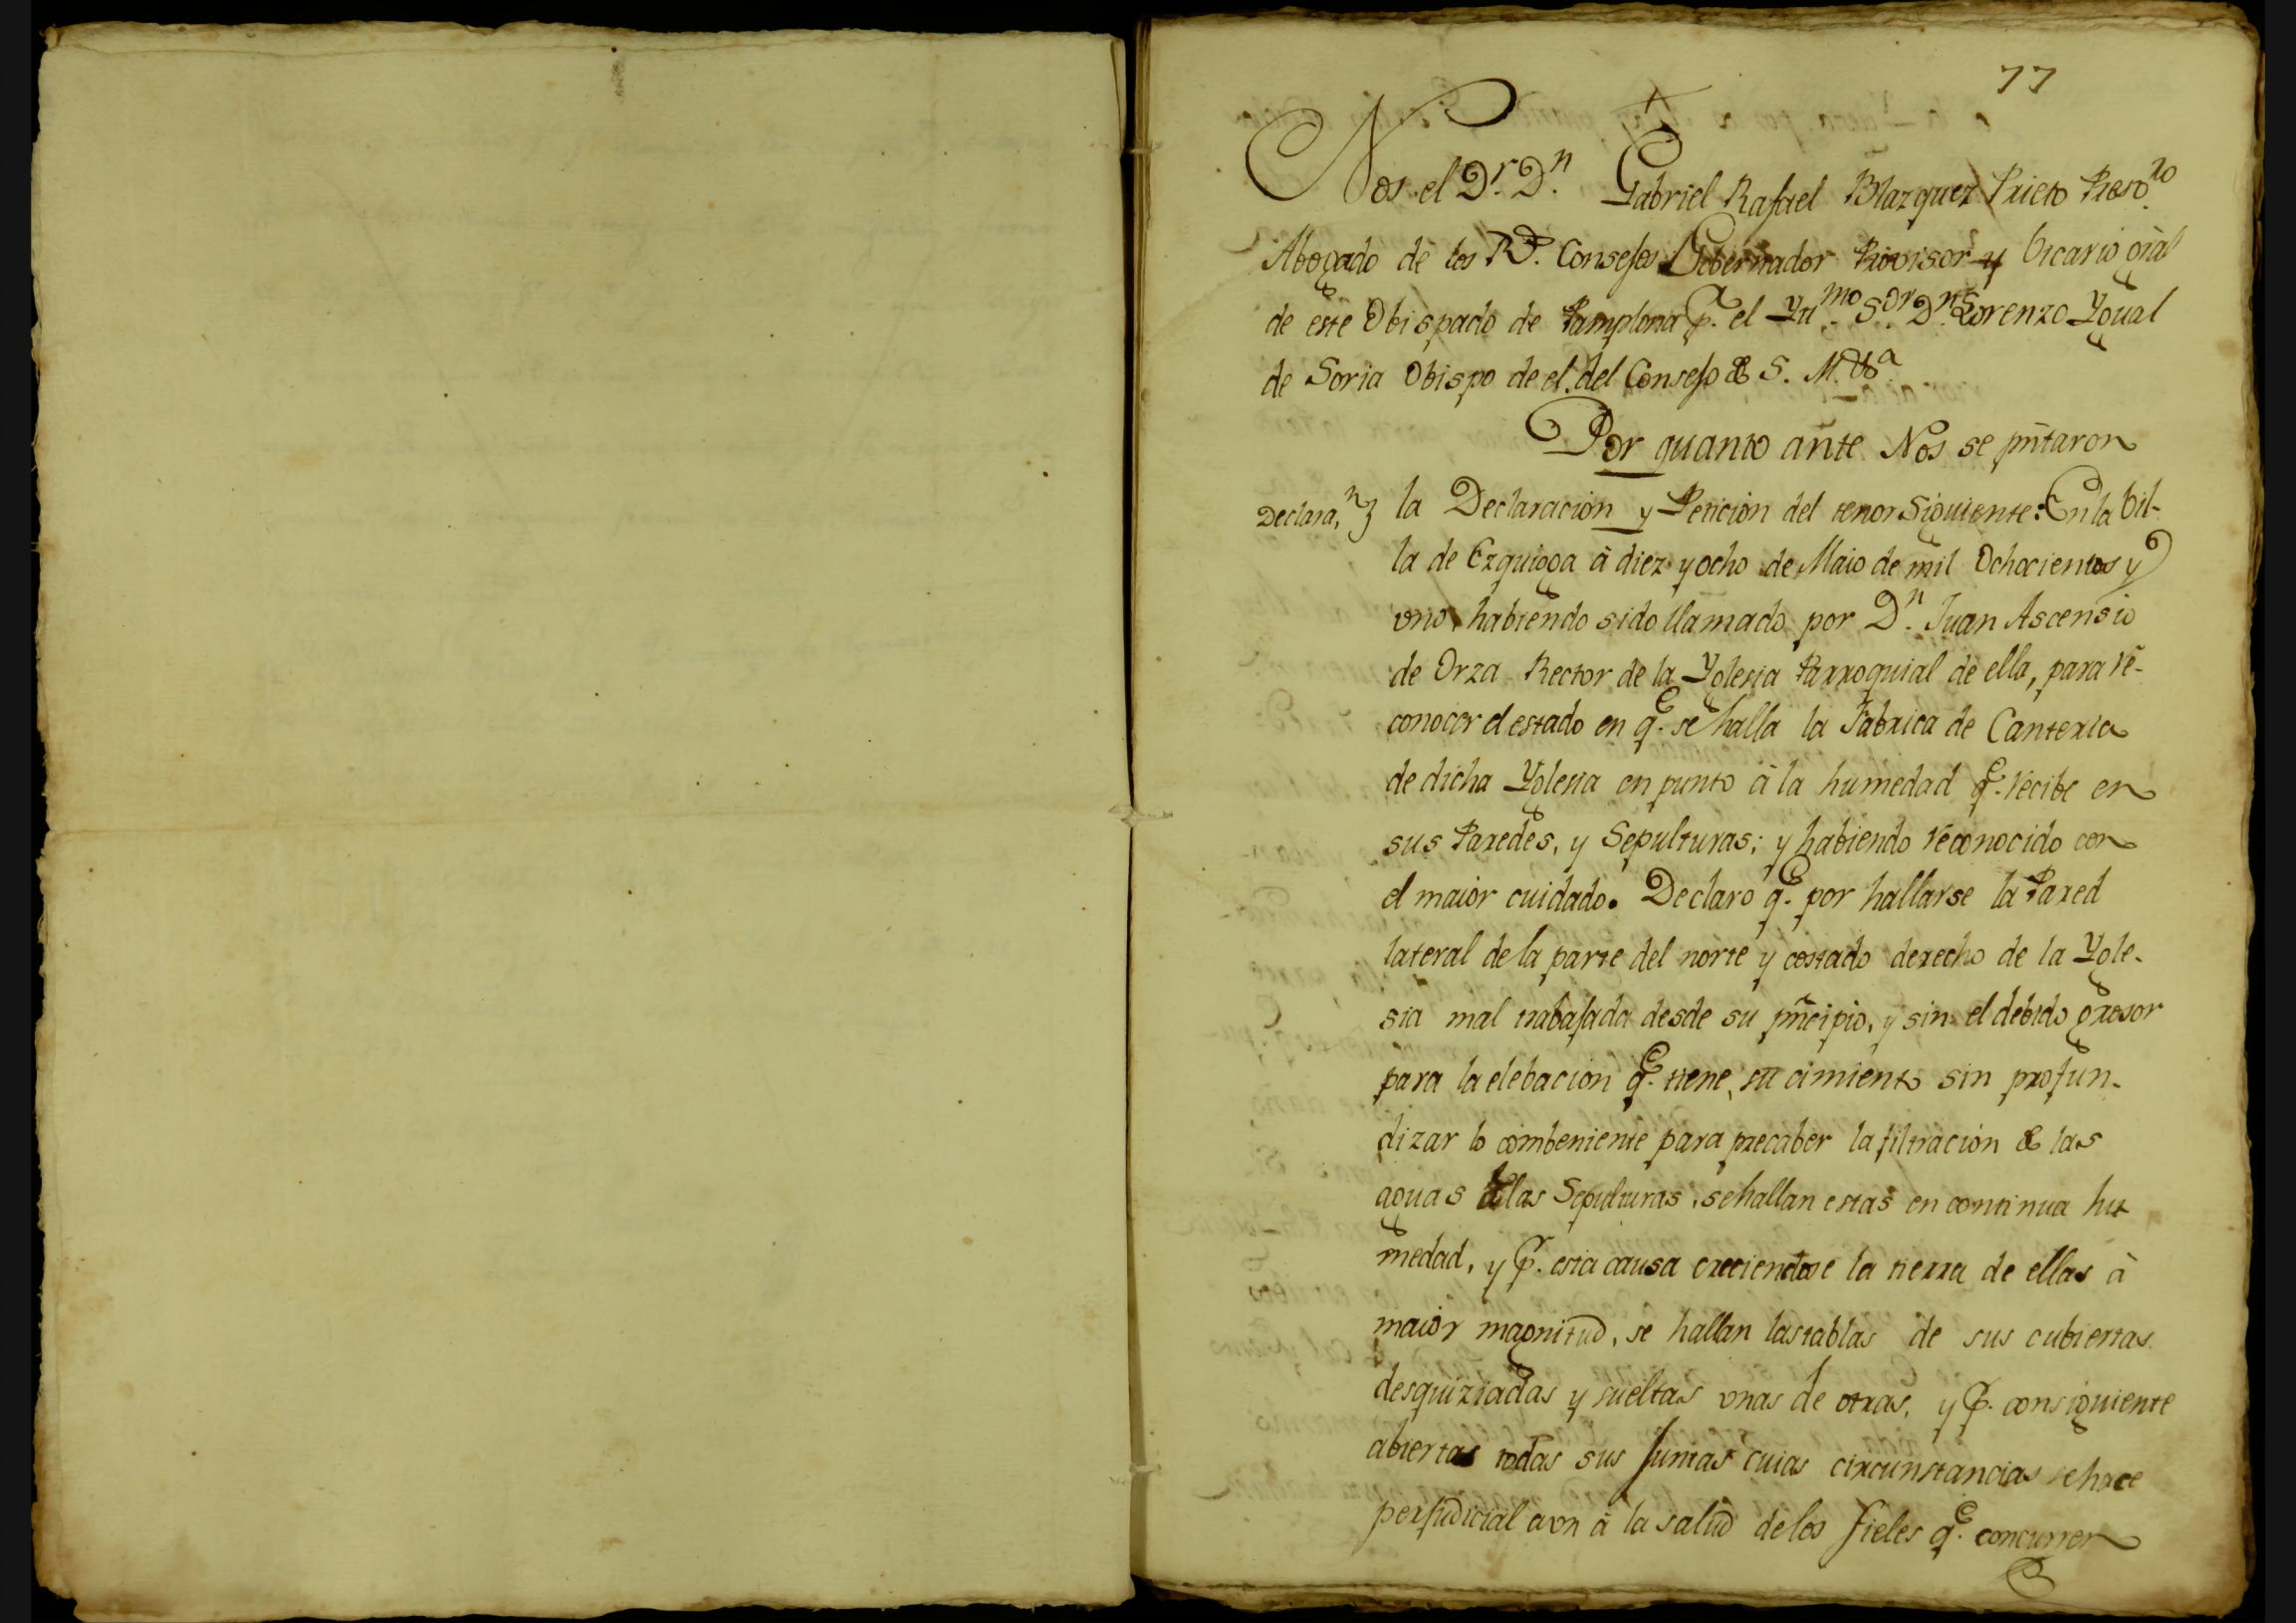 77
Nos el D.r D.n Gabriel Rafael Blazquez Prieto Presb.ro
Abogado de los R.s Consejos Gobernador Provisor y Vicario gral
de este Obispado de Pamplona p.r el Yll.mo S.or D.n Lorenzo Ygual
de Soria Obispo de el. del Consejo de S. M. &.a
Por quanto ante Nos se pñtaron
Declara.n } la Declaracion y Peticion del tenor Siguiente: En la Vil-
la de Ezquioga à diez y ocho de Maio de mil Ochocientos y
vno, habiendo sido llamado por D.n Juan Ascensio
de Orza Rector de la Yglesia Parroquial de ella, para re-
conocer el estado en q.e se halla la Fabrica de Canteria
de dicha Yglesia en punto à la humedad q.e recibe en
sus Paredes, y Sepulturas; y habiendo reconocido con
el maior cuidado. Declaro q.e por hallarse la Pared
lateral de la parte del norte y costado derecho de la Ygle-
sia mal trabajada desde su pñcipio, y sin el debido gresor
para la elebacion q.e tiene, su cimiento sin profun-
dizar lo combeniente para precaber la filtracion de las
aguas à las Sepulturas, se hallan estas en continua hu-
medad, y p.r esta causa creciendose la tierra de ellas à
maior magnitud, se hallan las tablas de sus cubiertas
desquiziadas y sueltas vnas de otras, y p.r consiguiente
abiertas todas sus Juntas cuias circunstancias se hace
perjudicial aun à la salud de los fieles q.e concurren